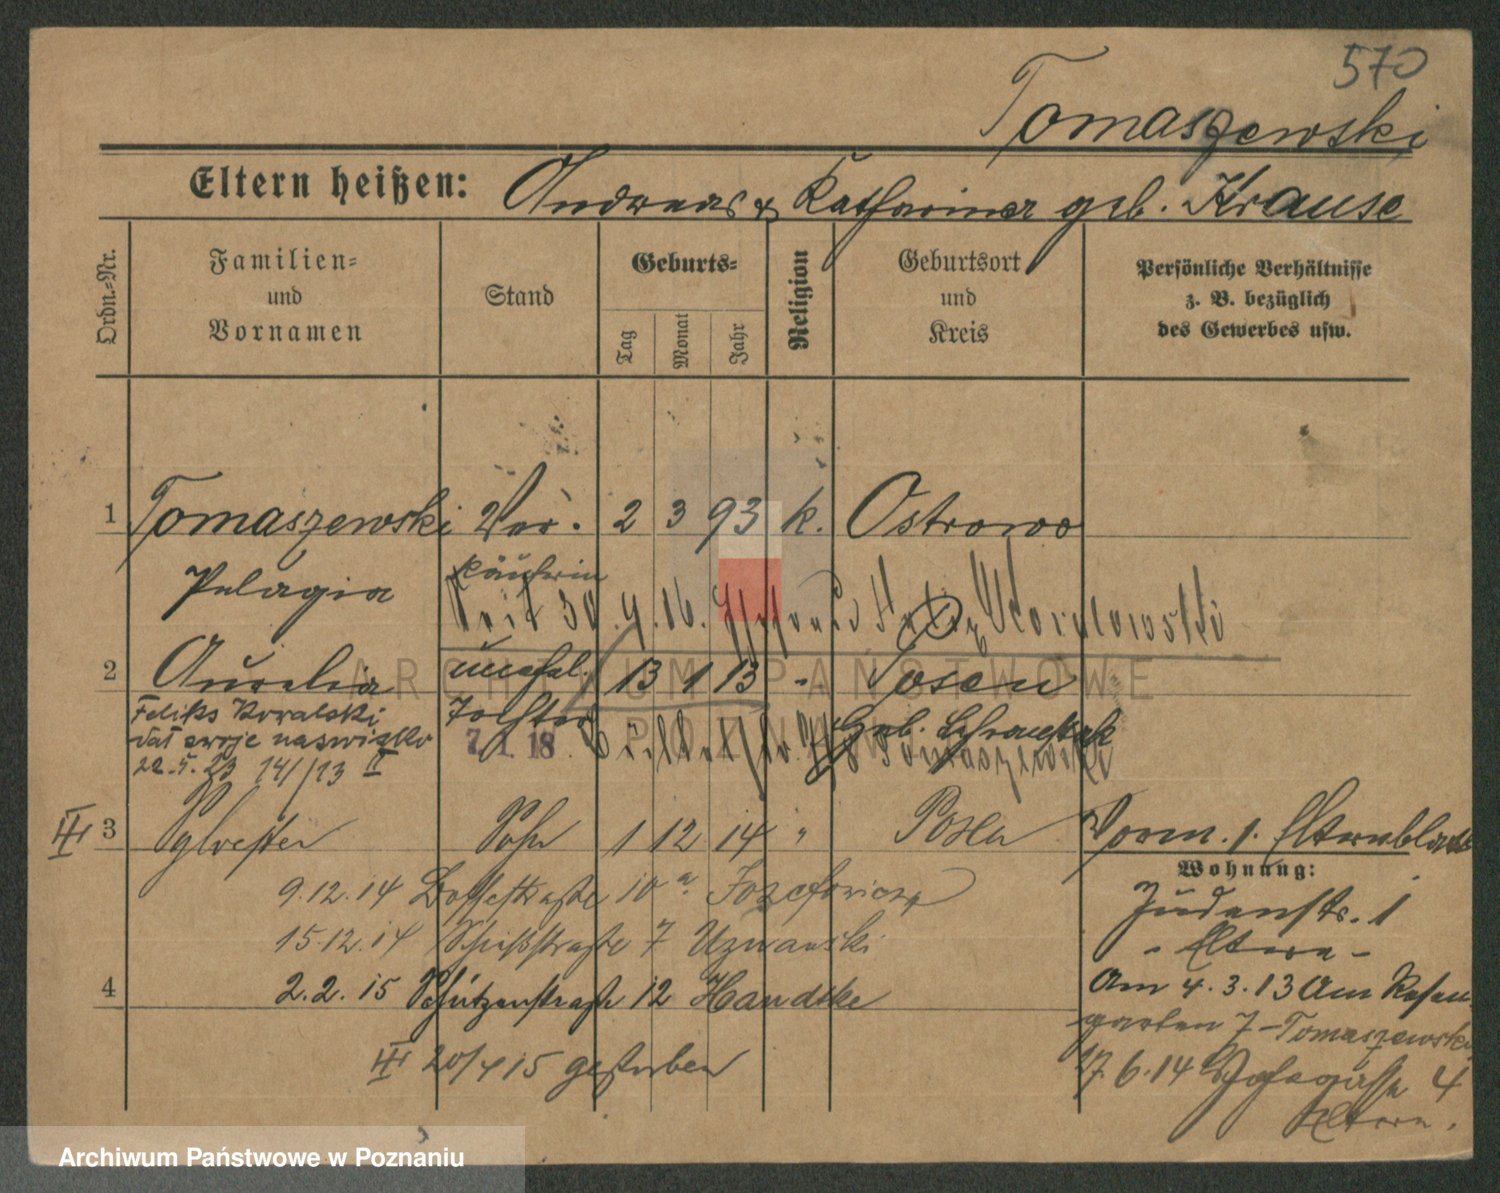 570
Tomaszewski
Eltern heißen: Andreas & Katharina geb. Krause
Ordn.-Nr.
Familien- und Vornamen
Stand
Geburts-
Tag
Monat
Jahr
Religion
Geburtsort und Kreis
Persönliche Verhältnisse z. B. bezüglich des Gewerbes usw.
1 Tomaszewski Ver- 2 3 93 k. Ostrowo
Pelagia käuferin
seit 30.4.16.
ARCHIWUM PAŃSTWOWE
POZNAŃ
2 Aurelia unehel. 13 1 13 " Posen
Feliks Kowalski Tochter
dał swoje nazwisko 7. 1. 18
22.5.23 14//13 II
Tomaszewski
III 3 Sylvester Sohn 1 12 14 " Posen
Vorm. 1. Elternblatt
Wohnung:
9.12.14 10 a Jozefowicz
Judenstr. 1
15.12.14 7 Uznanski
- Eltern -
4 2.2.15 Schützenstraße 12 Handtke
Am 4.3.13 Am Rosen-
garten 7 - Tomaszewski
III 20/4 15 gestorben
17.6.14 4
Eltern.
Archiwum Państwowe w Poznaniu